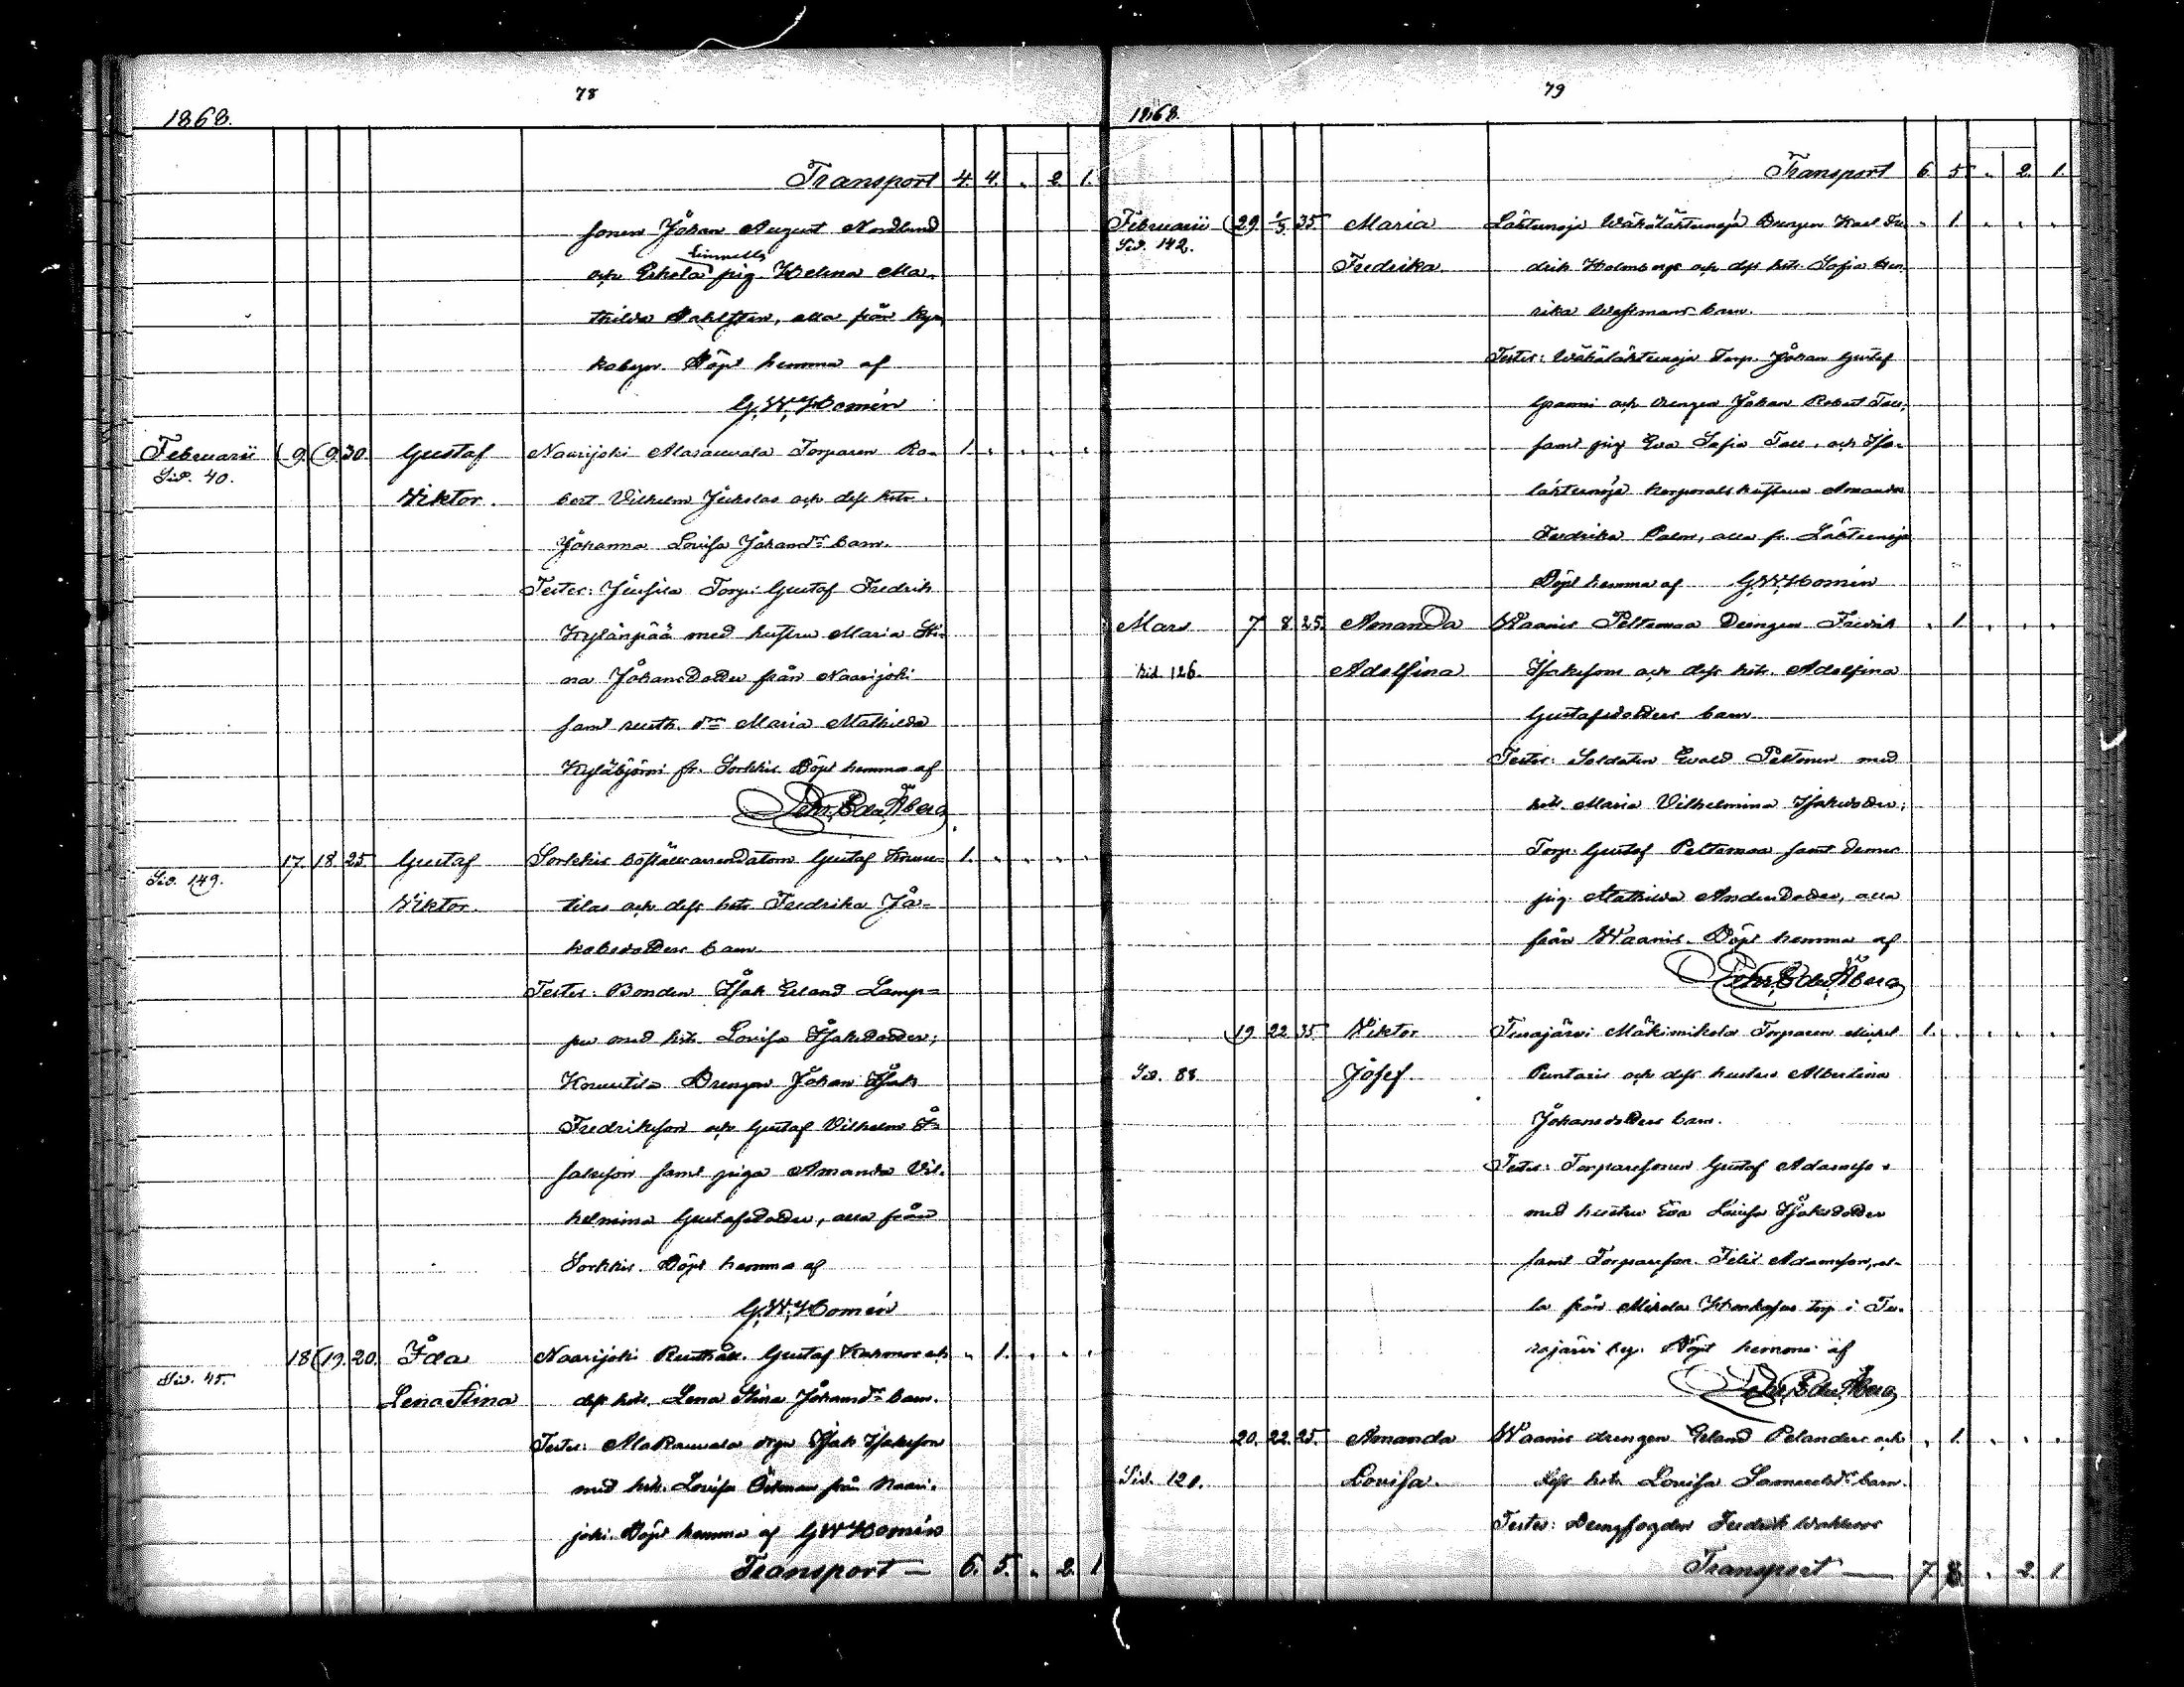 78
1868.
Transport 4. 4. " 2. 1.
sonen Johan August Nordlund
Linnells
och Eskola pig. Helena Ma-
thilda Dahlsten, alla från Kyr-
kobyn. Döpt hemma af
G.W. Homén
Februarii 9. 9. 30. Gustaf Naarijoki Torparen Ro- 1. " " " "
Sid. 40.
Viktor. bert Vilhelm och dess hstr.
Johanna Lovisa Johansdr barn.
Testes: Torp. Gustaf Fredrik
Kylänpää med hustru Maria Sti-
na Johansdotter från Naarijoki
samt rusth. dr Maria Mathilda
Kyläbjörni fr. Sorkkis. Döpt hemma af
Åberg
17. 18. 25. Gustaf Sorkkis boställsarrendatorn Gustaf Knuu- 1. " " " "
Sid. 149.
Viktor. tilas och dess hstr. Fredrika Ja-
kobsdotters barn.
Testes: Bonden Isak Erland Lamp-
pu med hstr. Lovisa Isaksdotter;
Knuutila Drengen Johan Isak
Fredriksson och Gustaf Vilhelm I-
saksson samt piga Amanda Vil-
helmina Gustafsdotter, alla från
Sorkkis. Döpt hemma af
G.W. Homén
18 19. 20. Ida Naarijoki Rusthåll. Gustaf och " 1. " " "
Sid. 45.
Lena Stina dess hstr. Lena Stina Johansdr barn.
Testes: Isak Isaksson
med hstr. Lovisa Öhman från Naari-
joki. Döpt hemma af G W Homén
Transport — 6. 5. " 2. 1
79
1868.
Transport 6. 5 " 2. 1.
Februarii 29. 1/3 35. Maria Lähteenoja Wähälähteenoja Drengen Karl Fre- " 1. " " "
Sid. 142.
Fredrika. drik Holmbergs och dess hstr. Sofia Hen-
rika Westmans barn.
Testes: Wähälähteenoja Torp. Johan Gustaf
Granni och drengen Johan Robert Tall,
samt pig. Eva Sofia Tall, och Iso-
lähteenoja Korporalshustrun Amanda
Fredrika Palm, alla fr. Lähteenoja
Döpt hemma af G.W. Homén
Mars 7 8 25. Amanda Waanis Peltomaa Drengen Fredrik " 1. " " "
Sid. 126.
Adolfina Isakssons och dess hstr. Adolfina
Gustafsdotters barn.
Testes: Soldaten Evald Peltonen med
hstr. Maria Vilhelmina Isaksdotter;
Torp. Gustaf Peltomaa samt dennes
pig. Mathilda Andersdotter, alla
från Waanis. Döpt hemma af
Åberg
19. 22 35. Viktor Turajärvi Mäkimikola Torparen Mickel 1. " " " "
Sid. 88.
Josef. Puntaris och dess hustru Albertina
Johansdotters barn.
Testes: Torparesonen Gustaf Adamsson
med hustru Eva Lovisa Isaksdotter
samt Torpareson. Felix Adamsson, al-
la från Mikola torp i Tu-
rajärvi by. Döpt hemma af
Åberg
20. 22. 25. Amanda Waanis drengen Erland Pelanders och " 1. " " "
Sid. 121.
Lovisa. dess hstr. Lovisa Samuelsdr barn.
Testes: Drengfogden Fredrik Wahlroos
Transport — 7. 8. " 2. 1